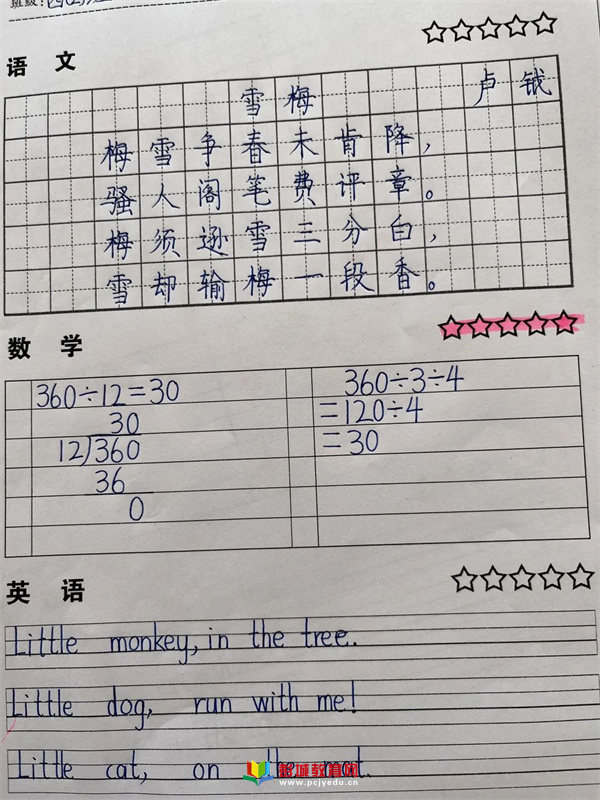 班级:
语 文
雪梅 卢钺
梅雪争春未肯降,
骚人阁笔费评章。
梅须逊雪三分白,
雪却输梅一段香。
数 学
360÷12=30
30
12)360
36
0
360÷3÷4
=120÷4
=30
英 语
Little monkey, in the tree.
Little dog, run with me!
Little cat, on the mat.
城教育网
www.pcjyedu.cn